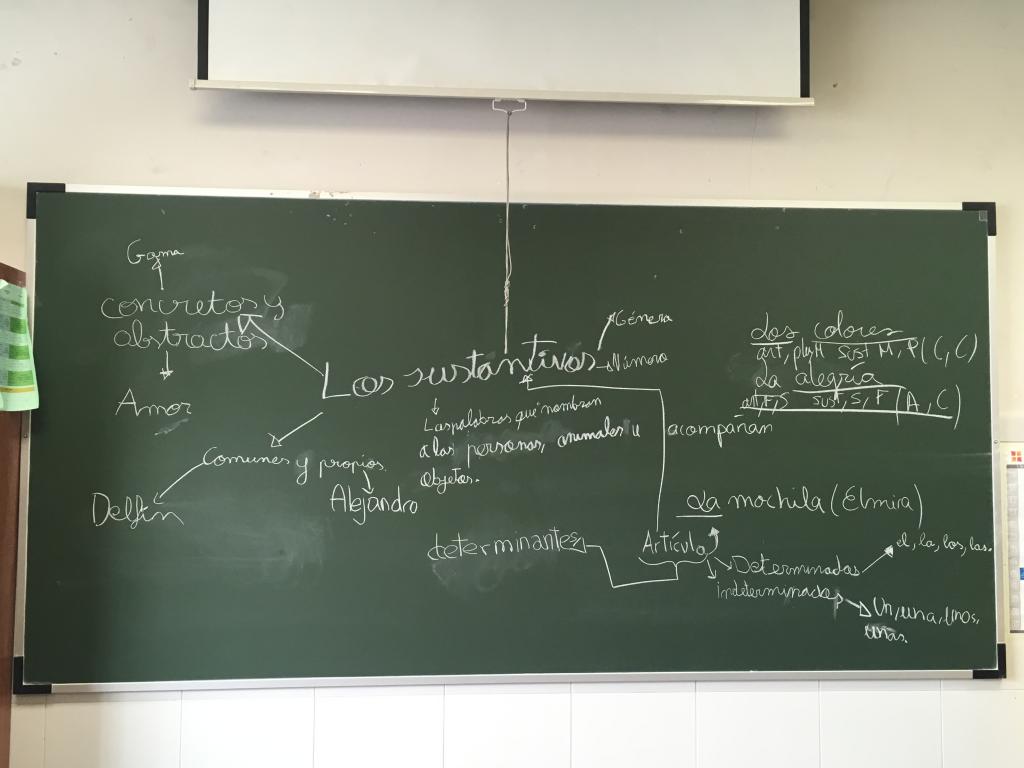 Goma
concretos y
abstractos
Amor
Los sustantivos
Género
Número
Las palabras que nombran
a las personas, animales u
objetos.
Comunes y propios.
Delfín
Alejandro
Los colores
art, pl, M sust M, P (C, C)
La alegría
art, F, S sust, S, F (A, C)
acompañan
La mochila (Elmira)
determinantes
Artículo
Determinados
el, la, los, las.
indeterminados
Un, una, unos,
unas.